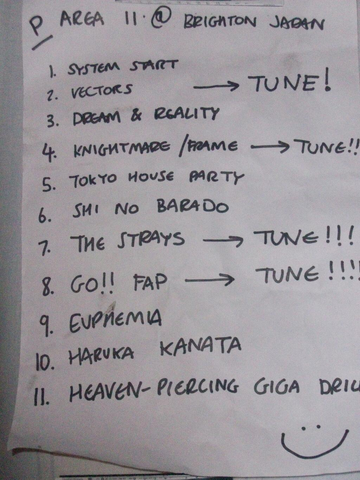 P AREA 11. @ BRIGHTON JAPAN
1. SYSTEM START
2. VECTORS → TUNE!
3. DREAM & REALITY
4. KNIGHTMARE/FRAME → TUNE!!
5. TOKYO HOUSE PARTY
6. SHI NO BARADO
7. THE STRAYS → TUNE!!!
8. GO!! FAP → TUNE!!!!
9. EUPHEMIA
10. HARUKA KANATA
11. HEAVEN-PIERCING GIGA DRIL